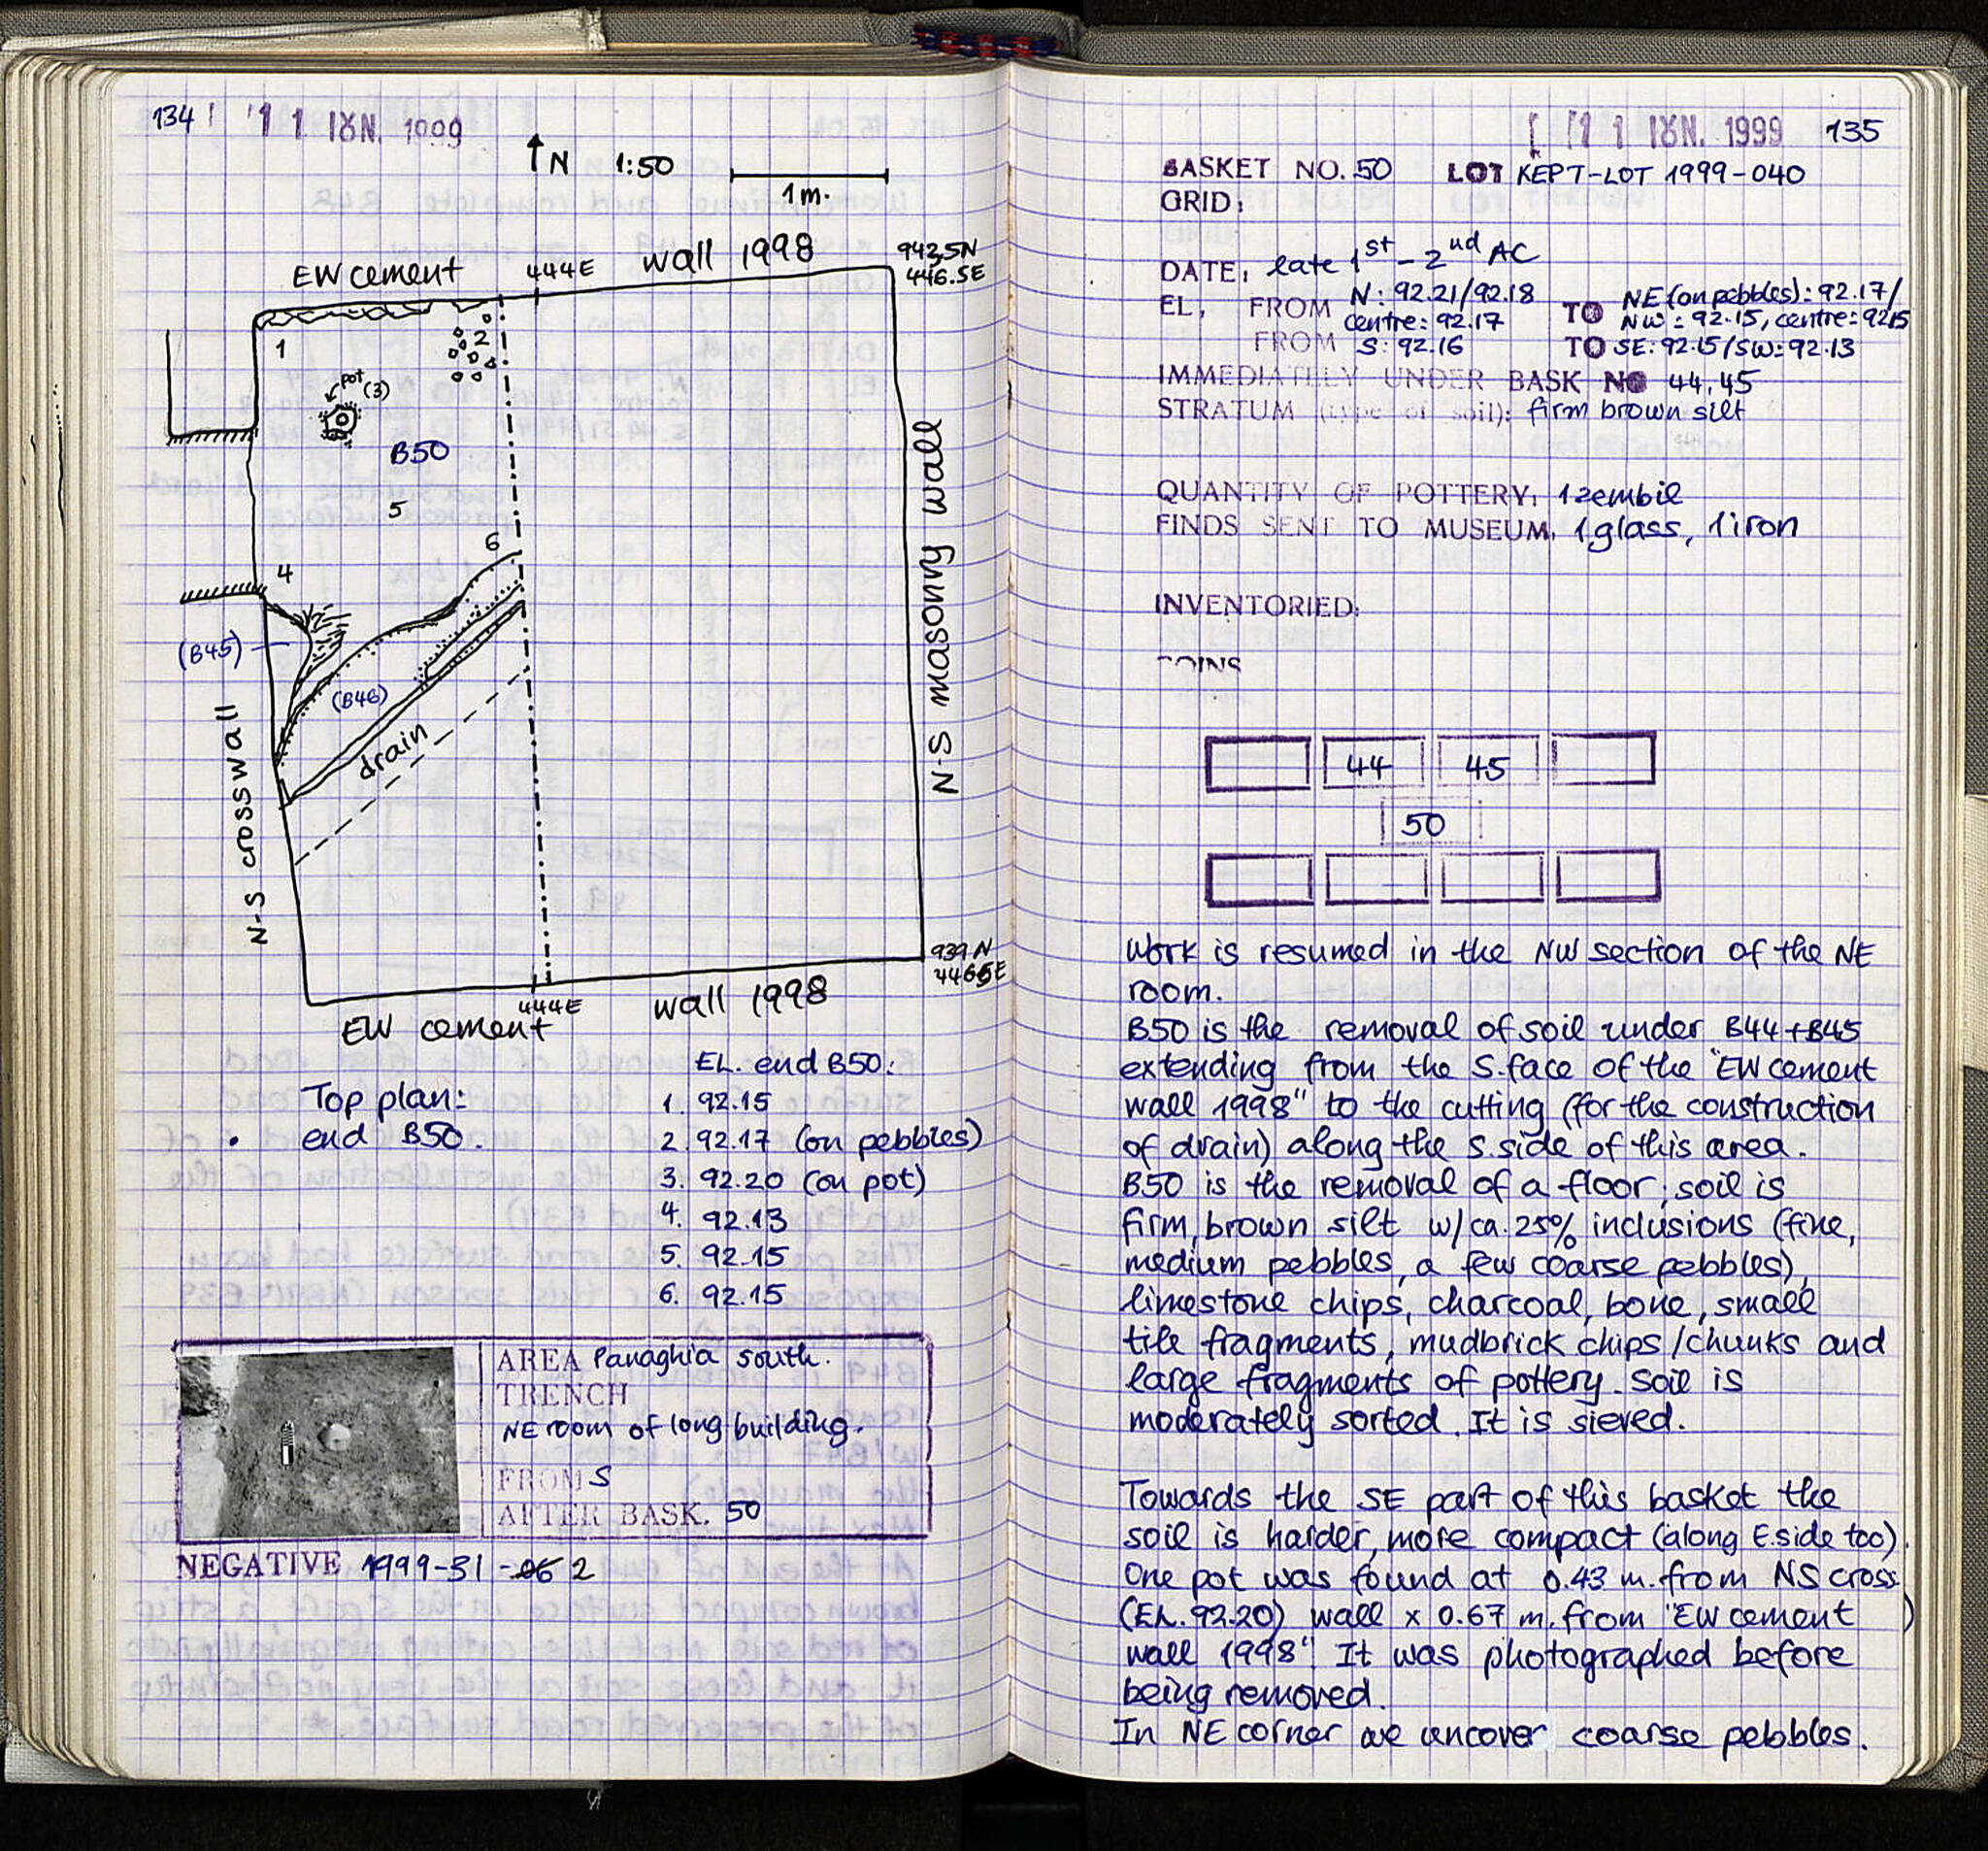 134
11 ΙΟΥΝ. 1999
N 1:50
1m.
EW cement
444E
wall 1998
942.5N
446.5E
1
2
pot
(3)
B50
5
6
4
(B45)
(B46)
drain
N-S crosswall
N-S masonry wall
939 N
446.5E
444E
wall 1998
EW cement
EL. end B50:
Top plan:
end B50.
1. 92.15
2. 92.17 (on pebbles)
3. 92.20 (on pot)
4. 92.13
5. 92.15
6. 92.15
AREA Panaghia South.
TRENCH
NE room of long building.
FROM S
AFTER BASK. 50
NEGATIVE 1999-31-06 2
11 ΙΟΥΝ. 1999
135
BASKET NO. 50 LOT KEPT-LOT 1999-040
GRID:
DATE: late 1st - 2nd AC
EL, FROM N: 92.21/92.18 TO NE (on pebbles): 92.17/
centre: 92.17 NW: 92.15, centre: 92.15
FROM S: 92.16 TO SE: 92.15/SW: 92.13
IMMEDIATELY UNDER BASK NO 44, 45
STRATUM (type of soil): firm brown silt
QUANTITY OF POTTERY: 1 zembil
FINDS SENT TO MUSEUM. 1 glass, 1 iron
INVENTORIED:
COINS
44 45
50
Work is resumed in the NW section of the NE
room.
B50 is the removal of soil under B44+B45
extending from the S. face of the "EW cement
wall 1998" to the cutting (for the construction
of drain) along the S. side of this area.
B50 is the removal of a floor; soil is
firm, brown silt w/ca. 25% inclusions (fine,
medium pebbles, a few coarse pebbles),
limestone chips, charcoal, bone, small
tile fragments, mudbrick chips/chunks and
large fragments of pottery. Soil is
moderately sorted. It is sieved.
Towards the SE part of this basket the
soil is harder, more compact (along E. side too).
One pot was found at 0.43 m. from NS cross
(EL. 92.20) wall x 0.67 m. from "EW cement
wall 1998". It was photographed before
being removed.
In NE corner we uncover coarse pebbles.